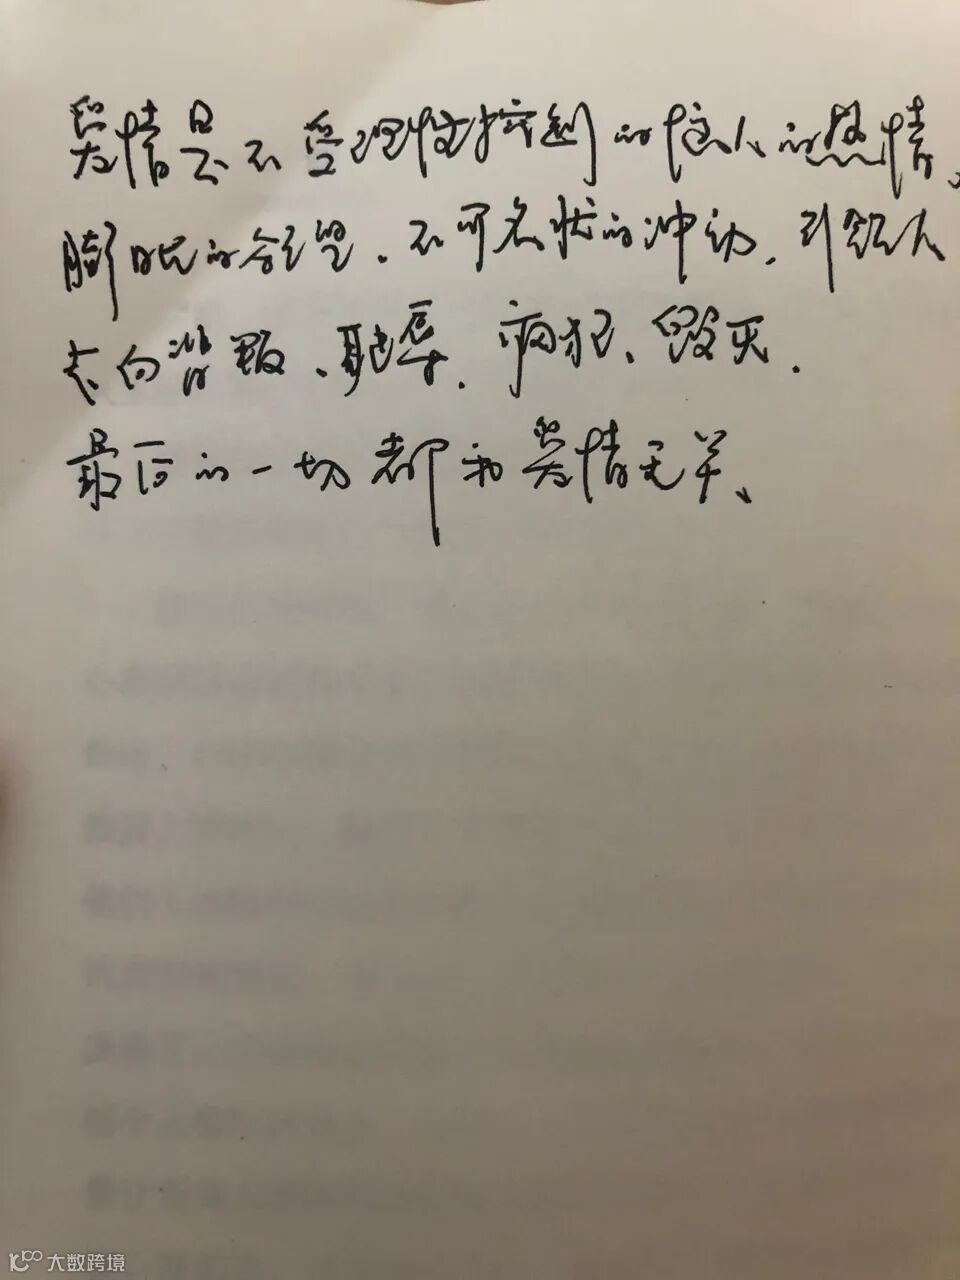 爱情是不受理性控制的惊人的热情、
朦胧的欲望.不可名状的冲动.引领人
走向背叛、耻辱.疯狂、毁灭.
最后的一切都和爱情无关、
大数跨境